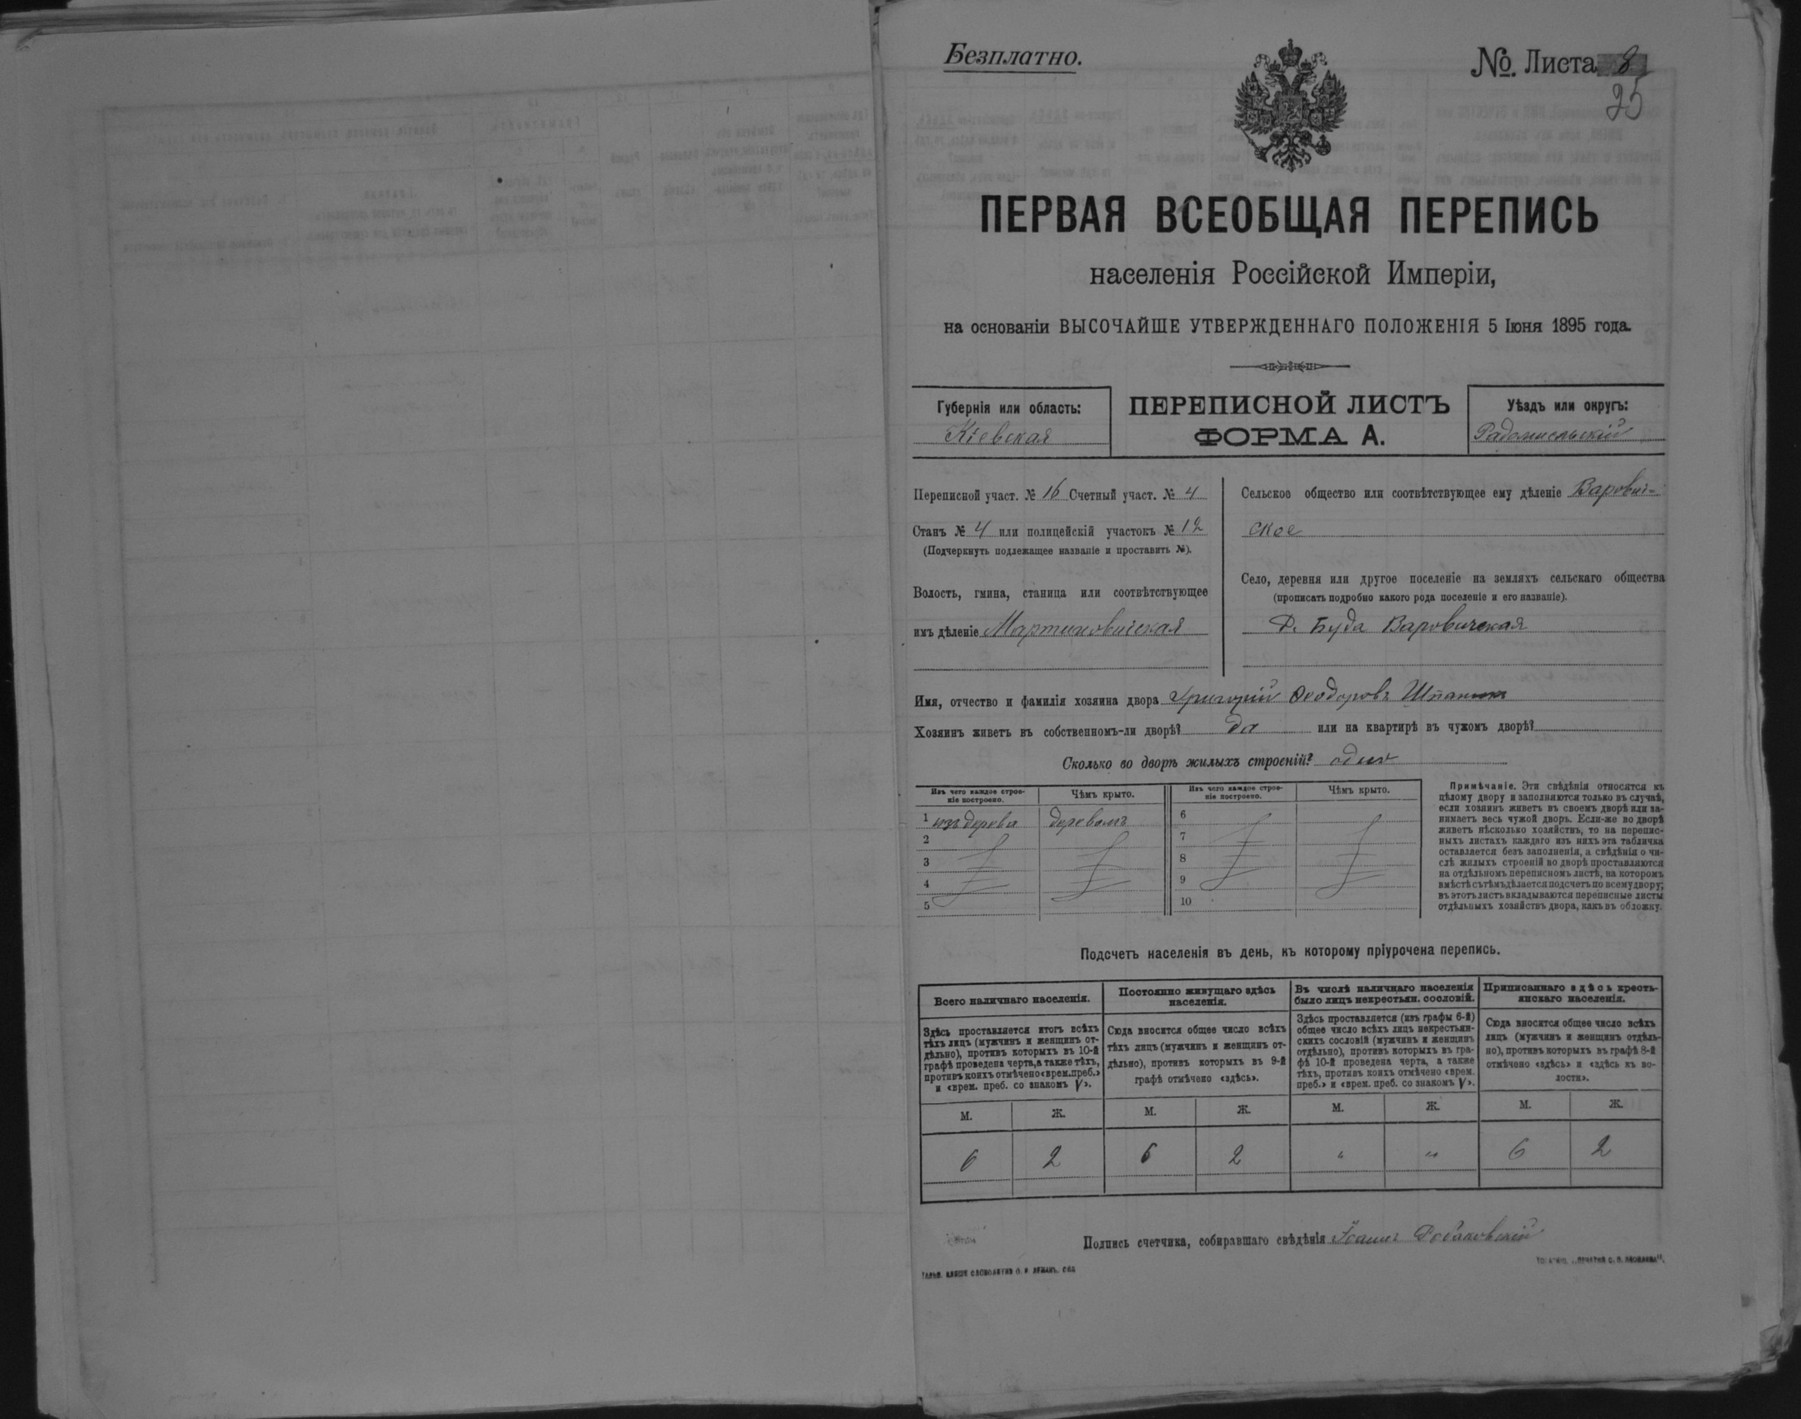 Безплатно.
№. Листа 8
25
ПЕРВАЯ ВСЕОБЩАЯ ПЕРЕПИСЬ
населенія Россійской Имперіи,
на основаніи ВЫСОЧАЙШЕ УТВЕРЖДЕННАГО ПОЛОЖЕНІЯ 5 Іюня 1895 года.
Губернія или область:
Кіевская
ПЕРЕПИСНОЙ ЛИСТЪ
ФОРМА А.
Уѣздъ или округъ:
Радомисльскій
Переписной участ. № 16 Счетный участ. № 4
Станъ № 4 или полицейскій участокъ № 12
(Подчеркнуть подлежащее названіе и проставить №).
Волость, гмина, станица или соотвѣтствующее
имъ дѣленіе Мартиновичская
Сельское общество или соотвѣтствующее ему дѣленіе Варович-
ское
Село, деревня или другое поселеніе на земляхъ сельскаго общества
(прописать подробно какого рода поселеніе и его названіе).
Д. Буда Варовичская
Имя, отчество и фамилія хозяина двора Григорій Ѳеодоровъ
Хозяинъ живетъ въ собственномъ-ли дворѣ? да или на квартирѣ въ чужомъ дворѣ?
Сколько во дворѣ жилыхъ строеній? один
Изъ чего каждое строе-
ніе построено.
Чѣмъ крыто.
Изъ чего каждое строе-
ніе построено.
Чѣмъ крыто.
1 изъ дерева деревомъ
2
3
4
5
6
7
8
9
10
Примѣчаніе. Эти свѣдѣнія относятся къ
цѣлому двору и заполняются только въ случаѣ,
если хозяинъ живетъ въ своемъ дворѣ или за-
нимаетъ весь чужой дворъ. Если-же во дворѣ
живетъ нѣсколько хозяйствъ, то на перепис-
ныхъ листахъ каждаго изъ нихъ эта табличка
оставляется безъ заполненія, а свѣдѣнія о чи-
слѣ жилыхъ строеній во дворѣ проставляются
на отдѣльномъ переписномъ листѣ, на которомъ
вмѣстѣ съ тѣмъ дѣлается подсчетъ по всему двору;
въ этотъ листъ вкладываются переписные листы
отдѣльныхъ хозяйствъ двора, какъ въ обложку.
Подсчетъ населенія въ день, къ которому пріурочена перепись.
Всего наличнаго населенія.
Здѣсь проставляется итогъ всѣхъ
тѣхъ лицъ (мужчинъ и женщинъ от-
дѣльно), противъ которыхъ въ 10-й
графѣ проведена черта, а также тѣхъ,
противъ коихъ отмѣчено «врем. преб.»
и «врем. преб. со знакомъ V».
Постоянно живущаго здѣсь
населенія.
Сюда вносится общее число всѣхъ
тѣхъ лицъ (мужчинъ и женщинъ от-
дѣльно), противъ которыхъ въ 9-й
графѣ отмѣчено «здѣсь».
Въ числѣ наличнаго населенія
было лицъ некрестьян. сословій.
Здѣсь проставляется (изъ графы 6-й)
общее число всѣхъ лицъ некрестьян-
скихъ сословій (мужчинъ и женщинъ
отдѣльно), противъ которыхъ въ гра-
фѣ 10-й проведена черта, а также
тѣхъ, противъ коихъ отмѣчено «врем.
преб.» и «врем. преб. со знакомъ V».
Приписаннаго здѣсь кресть-
янскаго населенія.
Сюда вносится общее число всѣхъ
лицъ (мужчинъ и женщинъ отдѣль-
но), противъ которыхъ въ графѣ 8-й
отмѣчено «здѣсь» и «здѣсь въ во-
лости».
М. Ж. М. Ж. М. Ж. М. Ж.
6 2 6 2 „ „ 6 2
Подпись счетчика, собиравшаго свѣдѣнія